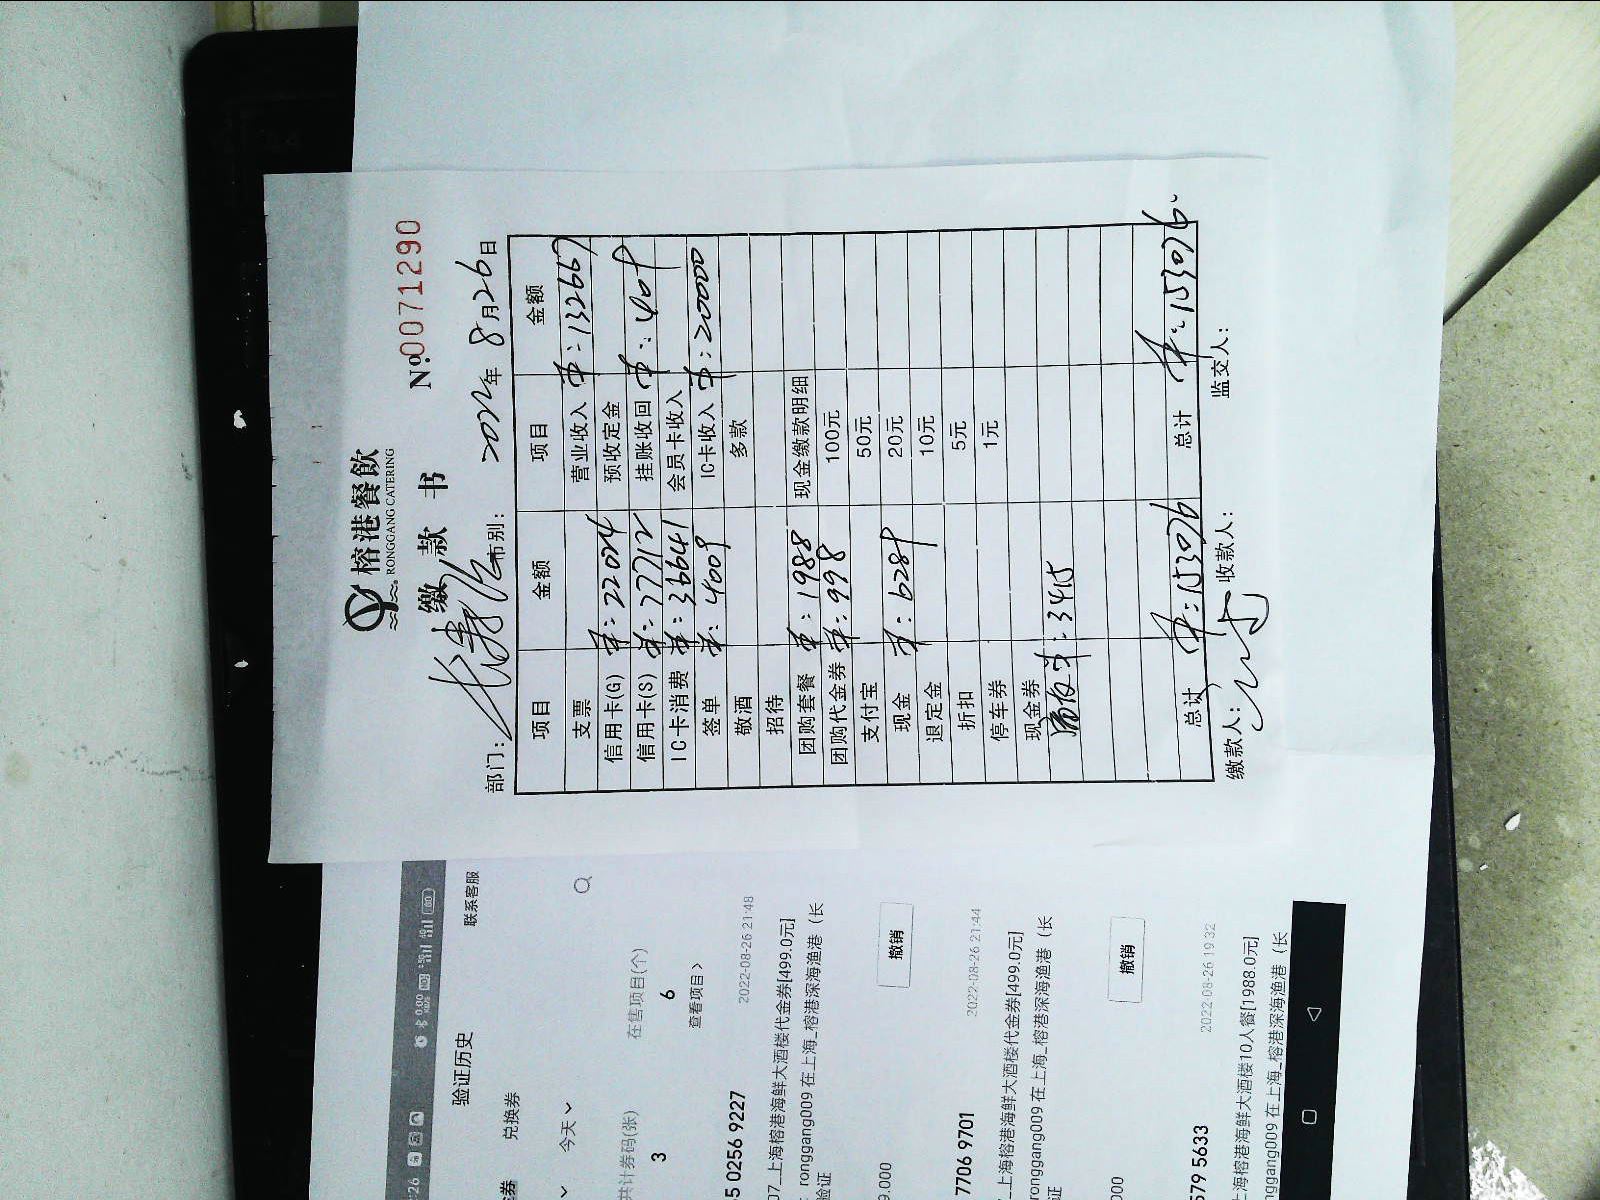 榕港餐飲
RONGGANG CATERING
缴款书
Nº 0071290
部门： 市别： 2022年 8月26日
项目 金额 项目 金额
支票 营业收入 ¥：132667
信用卡(G) ¥：22024 预收定金
信用卡(S) ¥：77712 挂账收回 ¥：409
IC卡消费 ¥：36641 会员卡收入
签单 ¥：4009 IC卡收入 ¥：20000
敬酒 多款
招待
团购套餐 ¥：1988 现金缴款明细
团购代金券 ¥：998 100元
支付宝 50元
现金 ¥：6289 20元
退定金 10元
折扣 5元
停车券 1元
现金券
：3415
总计 ¥：153076 总计 ¥：153076
缴款人： 收款人： 监交人：
:26 0.00 KB/s 5G 4G 60
验证历史 联系客服
券 兑换券
今天
共计券码(张) 在售项目(个)
3 6
查看项目>
5 0256 9227 2022-08-26 21:48
07_上海榕港海鲜大酒楼代金券[499.0元]
：ronggang009 在上海_榕港深海渔港（长
验证
9.000 撤销
7706 9701 2022-08-26 21:44
_上海榕港海鲜大酒楼代金券[499.0元]
ronggang009 在上海_榕港深海渔港（长
证
000 撤销
579 5633 2022-08-26 19:32
上海榕港海鲜大酒楼10人餐[1988.0元]
ggang009 在上海_榕港深海渔港（长